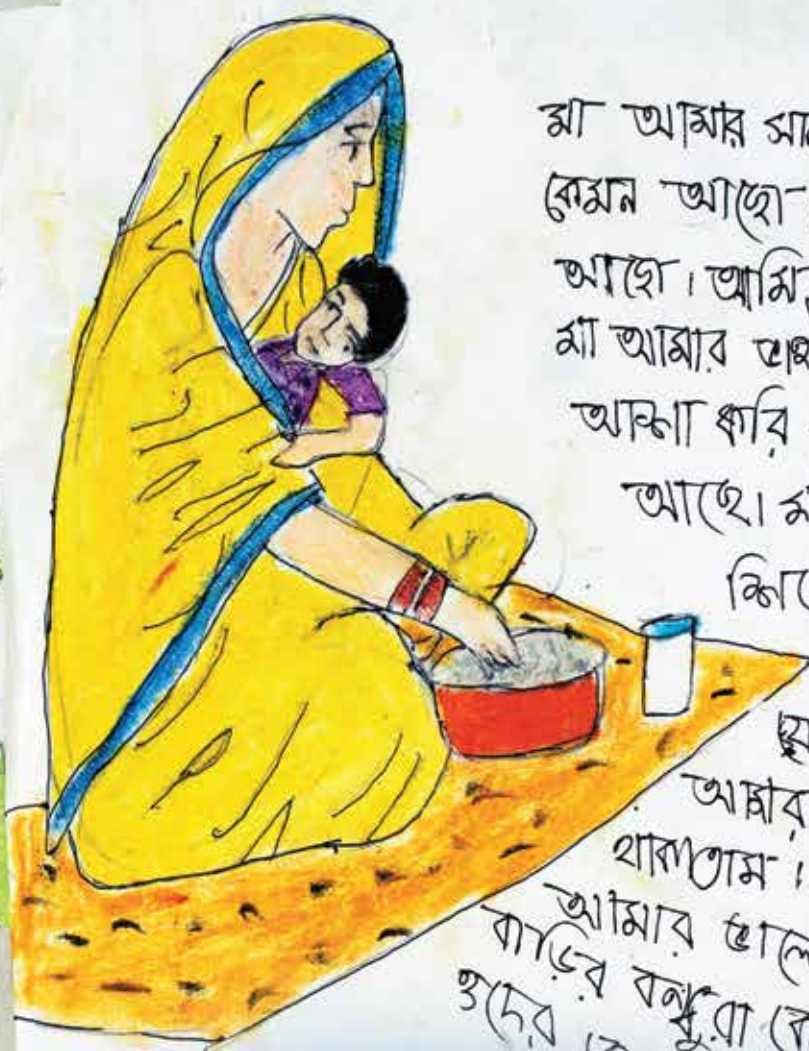 মা আমার
কেমন আছো
আছো। আমি
মা আমার
আশা করি
আছে।
আমার
থাকতাম।
আমার
বাড়ির বন্ধুরা
ওদের